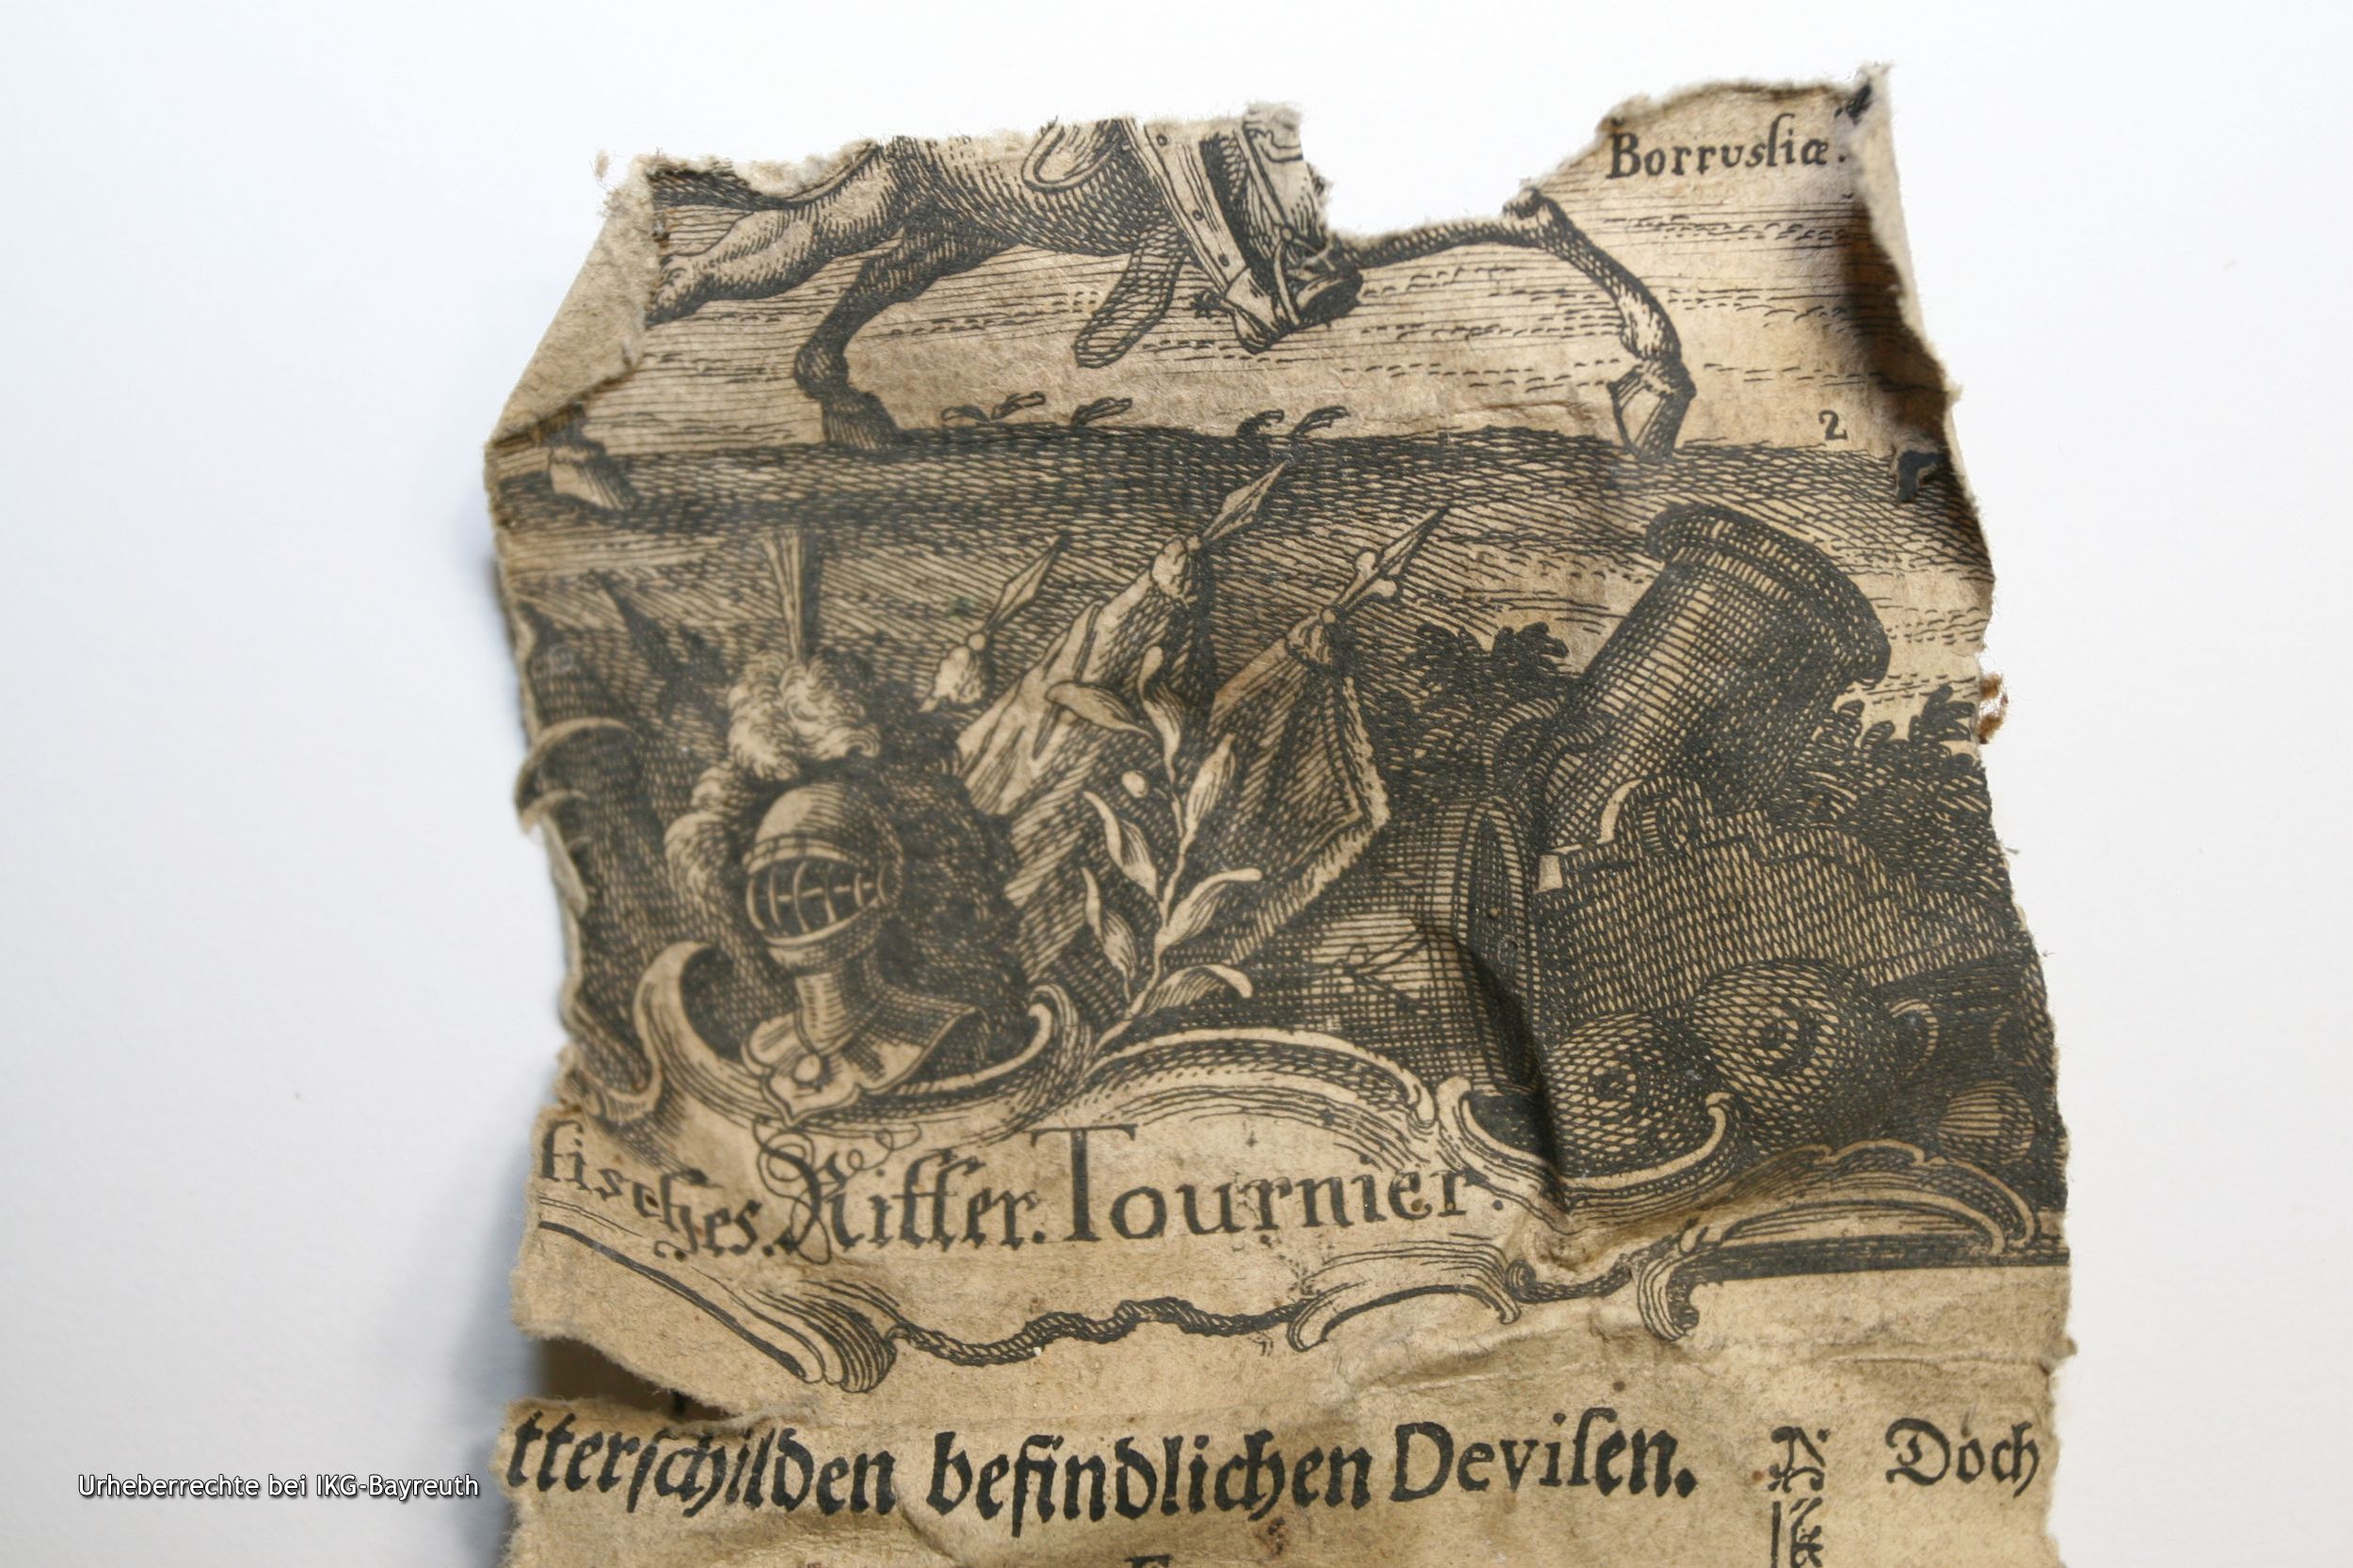 Borrusliæ.
2
tisches. Ritter. Tournier.
tterschilden befindlichen Devisen.
Doch
Urheberrechte bei IKG-Bayreuth